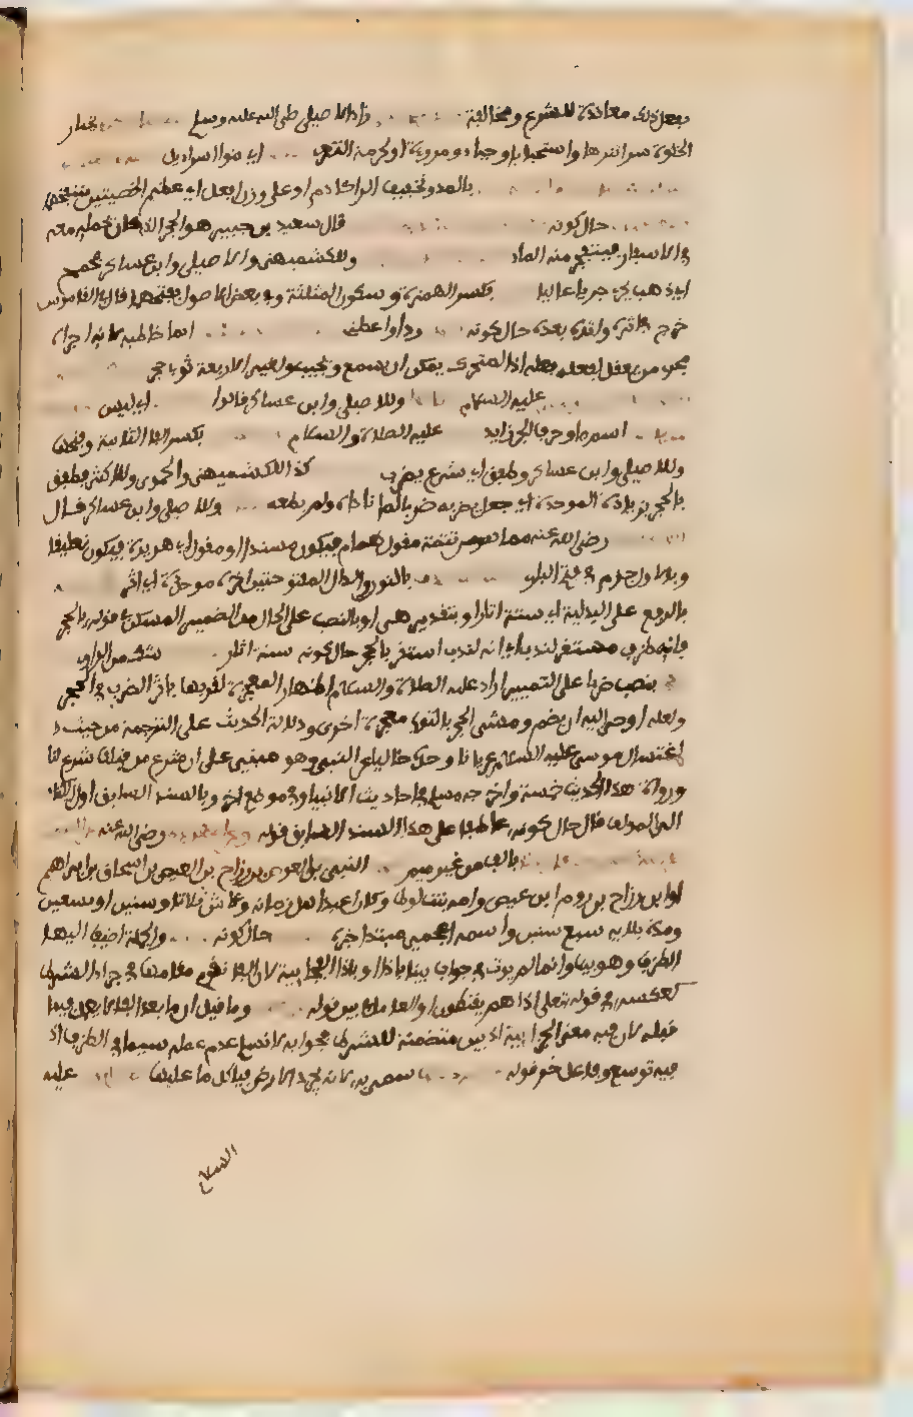 يفعل ذلك معاندة للشرع ومخالفة زاد الاصيلي صلى الله عليه وسلم يختار
الخلوة تنزها واستحبابا وحياء ومروءة او لحرمة التعري اي بنوا اسراءيل
بالمد وتخفيف الراء كادم او على وزن افعل اي عظيم الخصيتين منتفخهما
حال كونه قال سعيد بن جبير هو الحجر الذي كان يحمله معه
في الاسفار فينفجر منه الماء وللكشميهني والاصيلي وابن عساكر فجمح
اي ذهب يجري جريا عاليا بكسر الهمزة وسكون المثلثة وفي بعض الاصول بفتحهما قال في القاموس
خرج في اثره واثره بعده حال كونه رد او اعطني انما خاطبه لانه اجراه
مجرى من يعقل لفعله فعله اذ المتحرك يمكن ان يسمع ويجيب ولغير الاربعة ثوبي حجر
عليه السلام وللاصيلي وابن عساكر فقالوا اي ليس
اسم ما وحرف الجر زايد عليه الصلاة والسلام بكسر الفاء الثانية وفتحها
وللاصيلي وابن عساكر وطفق اي شرع يضرب كذا للكشميهني والحموي وللاكثر فطفق
بالحجر بزيادة الموحدة اي جعل يضربه ضربا لما ناداه ولم يطعه وللاصيلي وابن عساكر قال
رضي الله عنه مما هو من تتمة مقول همام فيكون مسندا او مقول ابي هريرة فيكون تعليقا
وبالاول جزم في فتح الباري بالنون والدال المفتوحتين اخره موحدة اي اثر
بالرفع على البدلية اي ستة اثار او بتقدير هي او بالنصب على الحال من الضمير المستكن في قوله بالحجر
فانه ظرف مستقر لندب اي انه لندب استقر بالحجر حال كونه ستة اثار شك من الراوي
بنصب ضربا على التمييز اراد عليه الصلاة والسلام اظهار المعجزة لقومه باثر الضرب في الحجر
ولعله اوحي اليه ان يضربه ومشي الحجر بالثوب معجزة اخرى ودلالة الحديث على الترجمة من حيث
اغتسال موسى عليه السلام عريانا وحده خاليا عن الناس وهو مبني على ان شرع من قبلنا شرع لنا
ورواة هذا الحديث خمسة واخرجه مسلم في احاديث الانبياء وفي موضع اخر وبالسند السابق اول الكتاب
الى المولف قال حال كونه عاطفا على هذا السند السابق قوله رضي الله عنه
بالف من غير ميم النبي بن العوص بن رزاح بن العيص بن اسحاق بن ابراهيم
او ابن رزاح بن روم ابن عيص وامه بنت لوط وكان اعبد اهل زمانه وعاش ثلاثا وستين او تسعين
ومدة بلايه سبع سنين واسمه اعجمي مبتدا خبره حال كونه والجملة اضيف اليها
الظرف وهو بين وانما لم يوت في جواب بينا باذا او باذا الفجائية لان الفاء تقوم مقامها في جزاء الشرط
كعكسه في قوله تعلى اذا هم يقنطون او العامل في بين قوله وما قيل ان ما بعد الفاء لا يعمل فيما
قبله لان فيه معنى الجزائية اذ بين متضمنة للشرط فجوابه لا نسلم عدم عمله سيما في الظرف اذ
فيه توسع وفاعل خر قوله سمي به لانه يجرد الارض فياكل ما عليها عليه
السلام